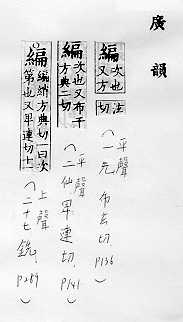 廣韻
編 次也又方泫切 （平聲 一先 布玄切. P136）
編 次也又布千方典二切 （平聲 二仙 卑連切. P141）
編 編絹方典切一曰次第也又卑連切十 （上聲 二十七銑, P289）